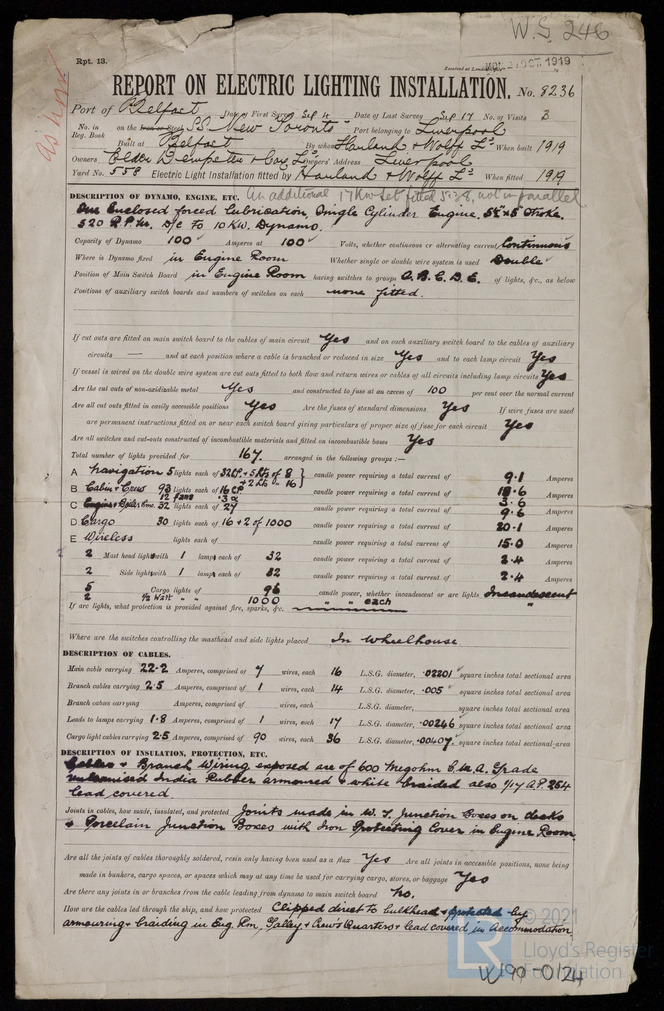 W.S. 246
Rpt. 13.
as now
Received at London Office MON. 27 OCT. 1919
REPORT ON ELECTRIC LIGHTING INSTALLATION. No. 8236
Port of Belfast Date of First Survey Sep 4 Date of Last Survey Sep 17 No. of Visits 3
No. in Reg. Book on the Iron or Steel S.S. New Toronto Port belonging to Liverpool
Built at Belfast By whom Harland & Wolff Ld When built 1919
Owners Elder Dempster & Co Ld Owners' Address Liverpool
Yard No. 558 Electric Light Installation fitted by Harland & Wolff Ld When fitted 1919
DESCRIPTION OF DYNAMO, ENGINE, ETC. An additional 17 Kw set fitted 5.38, not in parallel
One Enclosed forced Lubrication Single Cylinder Engine. 5½" x 5 Stroke.
520 R.P.M. D/C To 10 KW. Dynamo.
Capacity of Dynamo 100 Amperes at 100 Volts, whether continuous or alternating current Continuous
Where is Dynamo fixed in Engine Room Whether single or double wire system is used Double
Position of Main Switch Board in Engine Room having switches to groups A. B. C. D. E. of lights, &c., as below
Positions of auxiliary switch boards and numbers of switches on each none fitted.
If cut outs are fitted on main switch board to the cables of main circuit Yes and on each auxiliary switch board to the cables of auxiliary
circuits — and at each position where a cable is branched or reduced in size Yes and to each lamp circuit Yes
If vessel is wired on the double wire system are cut outs fitted to both flow and return wires or cables of all circuits including lamp circuits Yes
Are the cut outs of non-oxidizable metal Yes and constructed to fuse at an excess of 100 per cent over the normal current
Are all cut outs fitted in easily accessible positions Yes Are the fuses of standard dimensions Yes If wire fuses are used
are permanent instructions fitted on or near each switch board giving particulars of proper size of fuse for each circuit Yes
Are all switches and cut-outs constructed of incombustible materials and fitted on incombustible bases Yes
Total number of lights provided for 167. arranged in the following groups :—
A Navigation 5 lights each of 32 CP. + 5 lts of 8 + 2 lts - 16 candle power requiring a total current of 9.1 Amperes
B Cabin + Crew 98 lights each of 16 CP candle power requiring a total current of 18.6 Amperes
12 fans .3 a 3.6
C Engine + Boiler Rms. 32 lights each of 24 candle power requiring a total current of 9.6 Amperes
D Cargo 30 lights each of 16 + 2 of 1000 candle power requiring a total current of 20.1 Amperes
E Wireless lights each of candle power requiring a total current of 15.0 Amperes
2 Mast head light with 1 lamp each of 32 candle power requiring a total current of 2.4 Amperes
2 Side light with 1 lamp each of 32 candle power requiring a total current of 2.4 Amperes
5 Cargo lights of 96 candle power, whether incandescent or arc lights Incandescent
2 ½ Watt " " 1000 " " each "
If arc lights, what protection is provided against fire, sparks, &c.
Where are the switches controlling the masthead and side lights placed In Wheelhouse
DESCRIPTION OF CABLES.
Main cable carrying 22.2 Amperes, comprised of 7 wires, each 16 L.S.G. diameter, .02201 square inches total sectional area
Branch cables carrying 2.5 Amperes, comprised of 1 wires, each 14 L.S.G. diameter, .005 square inches total sectional area
Branch cables carrying Amperes, comprised of wires, each L.S.G. diameter, square inches total sectional area
Leads to lamps carrying 1.8 Amperes, comprised of 1 wires, each 17 L.S.G. diameter, .00246 square inches total sectional area
Cargo light cables carrying 2.5 Amperes, comprised of 90 wires, each 36 L.S.G. diameter, .00407 square inches total sectional area
DESCRIPTION OF INSULATION, PROTECTION, ETC.
Cables + Branch Wiring exposed are of 600 megohm C.M.A. Grade
vulcanised India Rubber armoured + white braided also 1/17 A.P. 254
lead covered
Joints in cables, how made, insulated, and protected Joints made in W. T. Junction Boxes on decks
+ Porcelain Junction Boxes with Iron Protecting Cover in Engine Room.
Are all the joints of cables thoroughly soldered, resin only having been used as a flux Yes Are all joints in accessible positions, none being
made in bunkers, cargo spaces, or spaces which may at any time be used for carrying cargo, stores, or baggage Yes
Are there any joints in or branches from the cable leading from dynamo to main switch board No.
How are the cables led through the ship, and how protected Clipped direct to bulkhead + protected by
armouring + braiding in Eng. Rm, Galley + Crew's Quarters + lead covered in accommodation
© 2021
LR
Lloyd's Register
Foundation
W190-0124